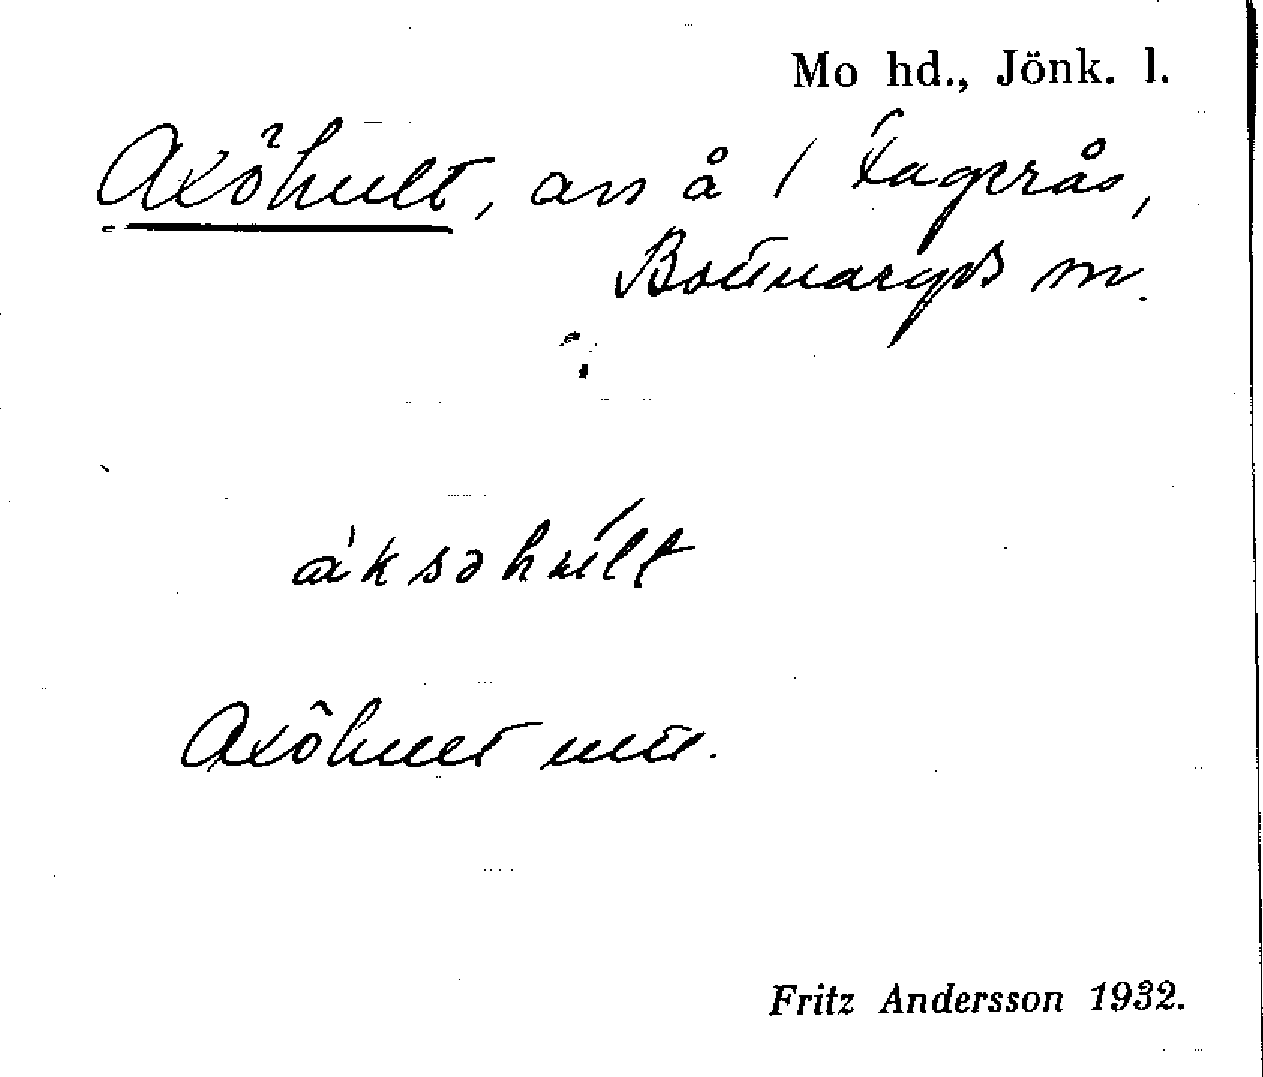 Mo hd., Jönk. l.
Axöhult, avs å 1 Fagerås,
Bottnaryds
áksəhúlt
Axöhult
Fritz Andersson 1932.